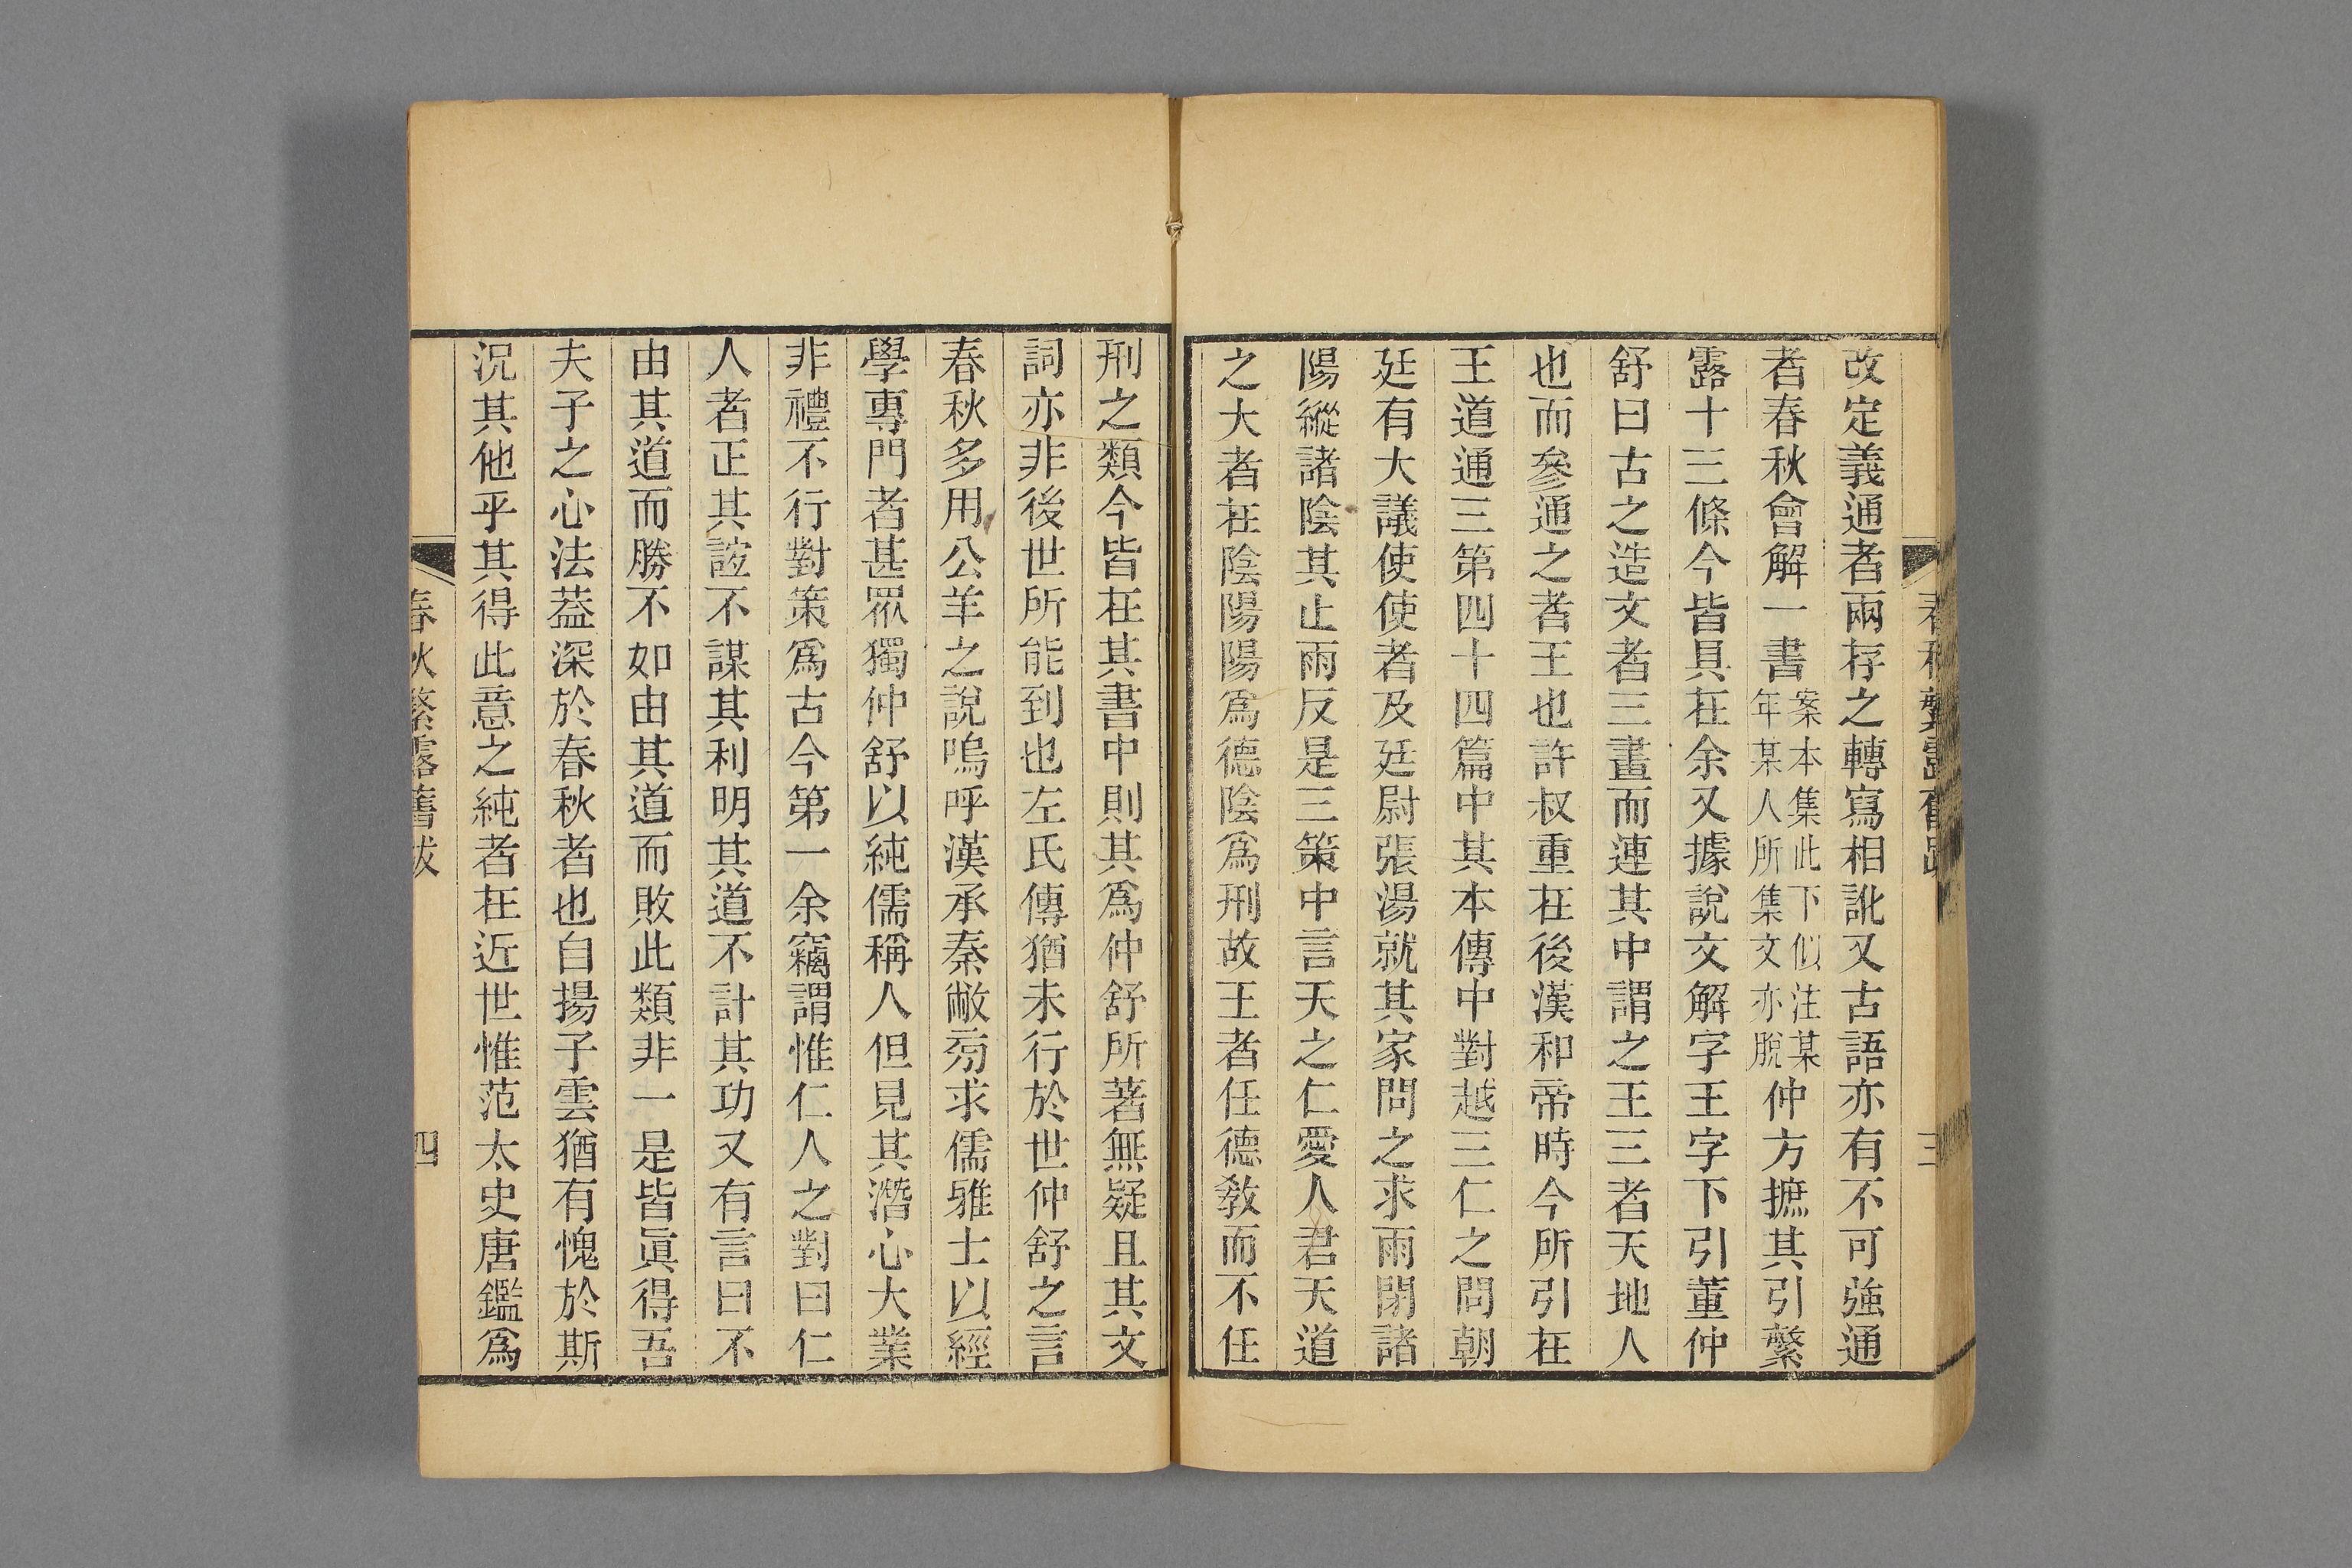 春秋繁露舊跋
三
改定義通者兩存之轉寫相訛又古語亦有不可強通
者春秋會解一書案本集此下似注某年某人所集文亦脫仲方摭其引繁
露十三條今皆具在余又據說文解字王字下引董仲
舒曰古之造文者三畫而連其中謂之王三者天地人
也而參通之者王也許叔重在後漢和帝時今所引在
王道通三第四十四篇中其本傳中對越三仁之問朝
廷有大議使使者及廷尉張湯就其家問之求雨閉諸
陽縱諸陰其止雨反是三策中言天之仁愛人君天道
之大者在陰陽陽爲德陰爲刑故王者任德教而不任
刑之類今皆在其書中則其爲仲舒所著無疑且其文
詞亦非後世所能到也左氏傳猶未行於世仲舒之言
春秋多用公羊之說嗚呼漢承秦敝旁求儒雅士以經
學專門者甚眾獨仲舒以純儒稱人但見其潛心大業
非禮不行對策爲古今第一余竊謂惟仁人之對曰仁
人者正其誼不謀其利明其道不計其功又有言曰不
由其道而勝不如由其道而敗此類非一是皆眞得吾
夫子之心法葢深於春秋者也自揚子雲猶有愧於斯
況其他乎其得此意之純者在近世惟范太史唐鑑爲
春秋繁露舊跋
四